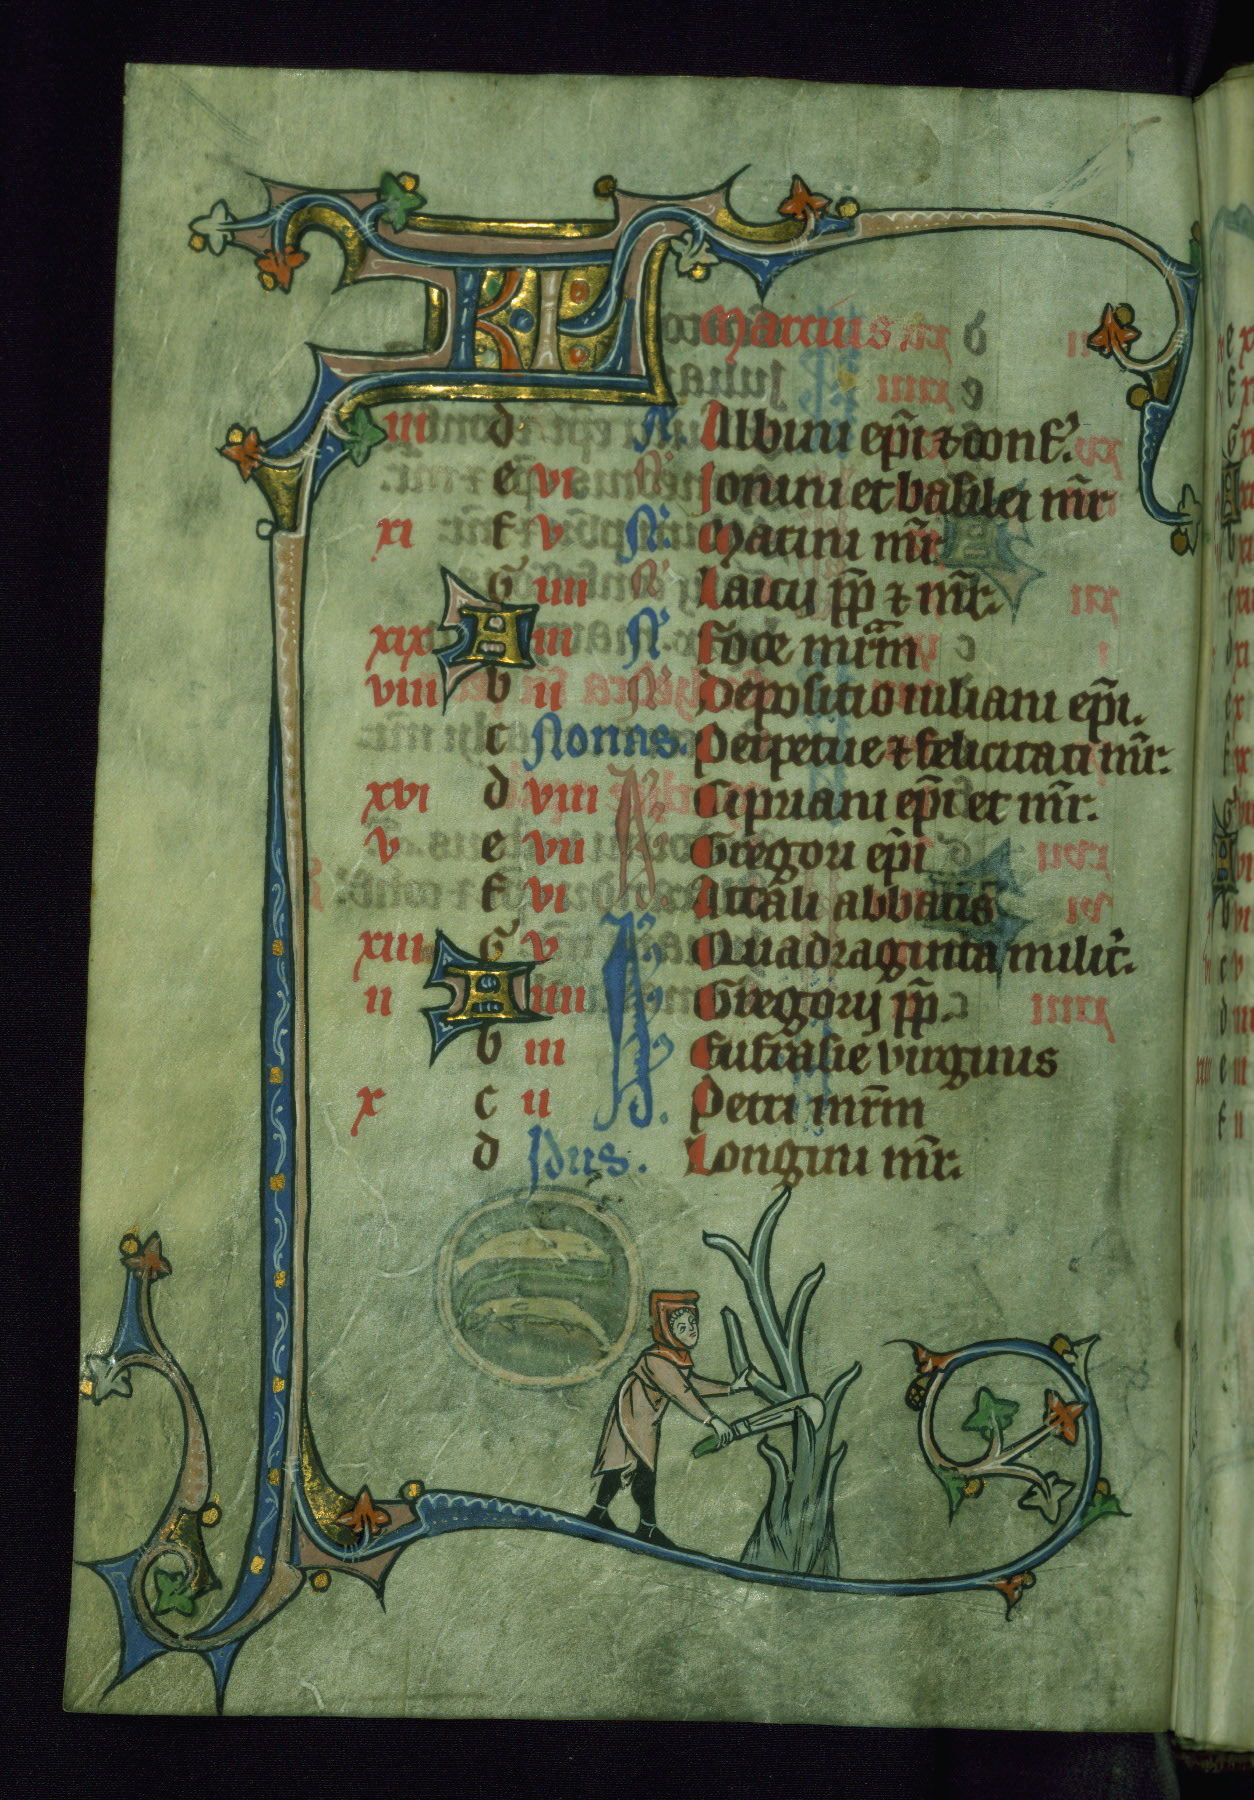 KL Marcius
iii d N. Albini ep̄i ⁊ conf.
e vi N. Ionini et basilei m̄r
xi f v N. Marini m̄r
G iiii N. Lucij p̄p ⁊ m̄r.
xix A iii N. Foce mr̄m
viii b ii N. Depositio iuliani ep̄i.
c Nonas. Perpetue ⁊ felicitati m̄r.
xvi d viii N. Cipriani ep̄i et m̄r.
v e vii Gregori ep̄i
f vi Attali abbatis
xiii G v K Quadraginta milit.
ii A iiii Gregorij p̄p.
b iii Eufrasie virginis
x c ii Petri mr̄m
d Idus. Longini m̄r.